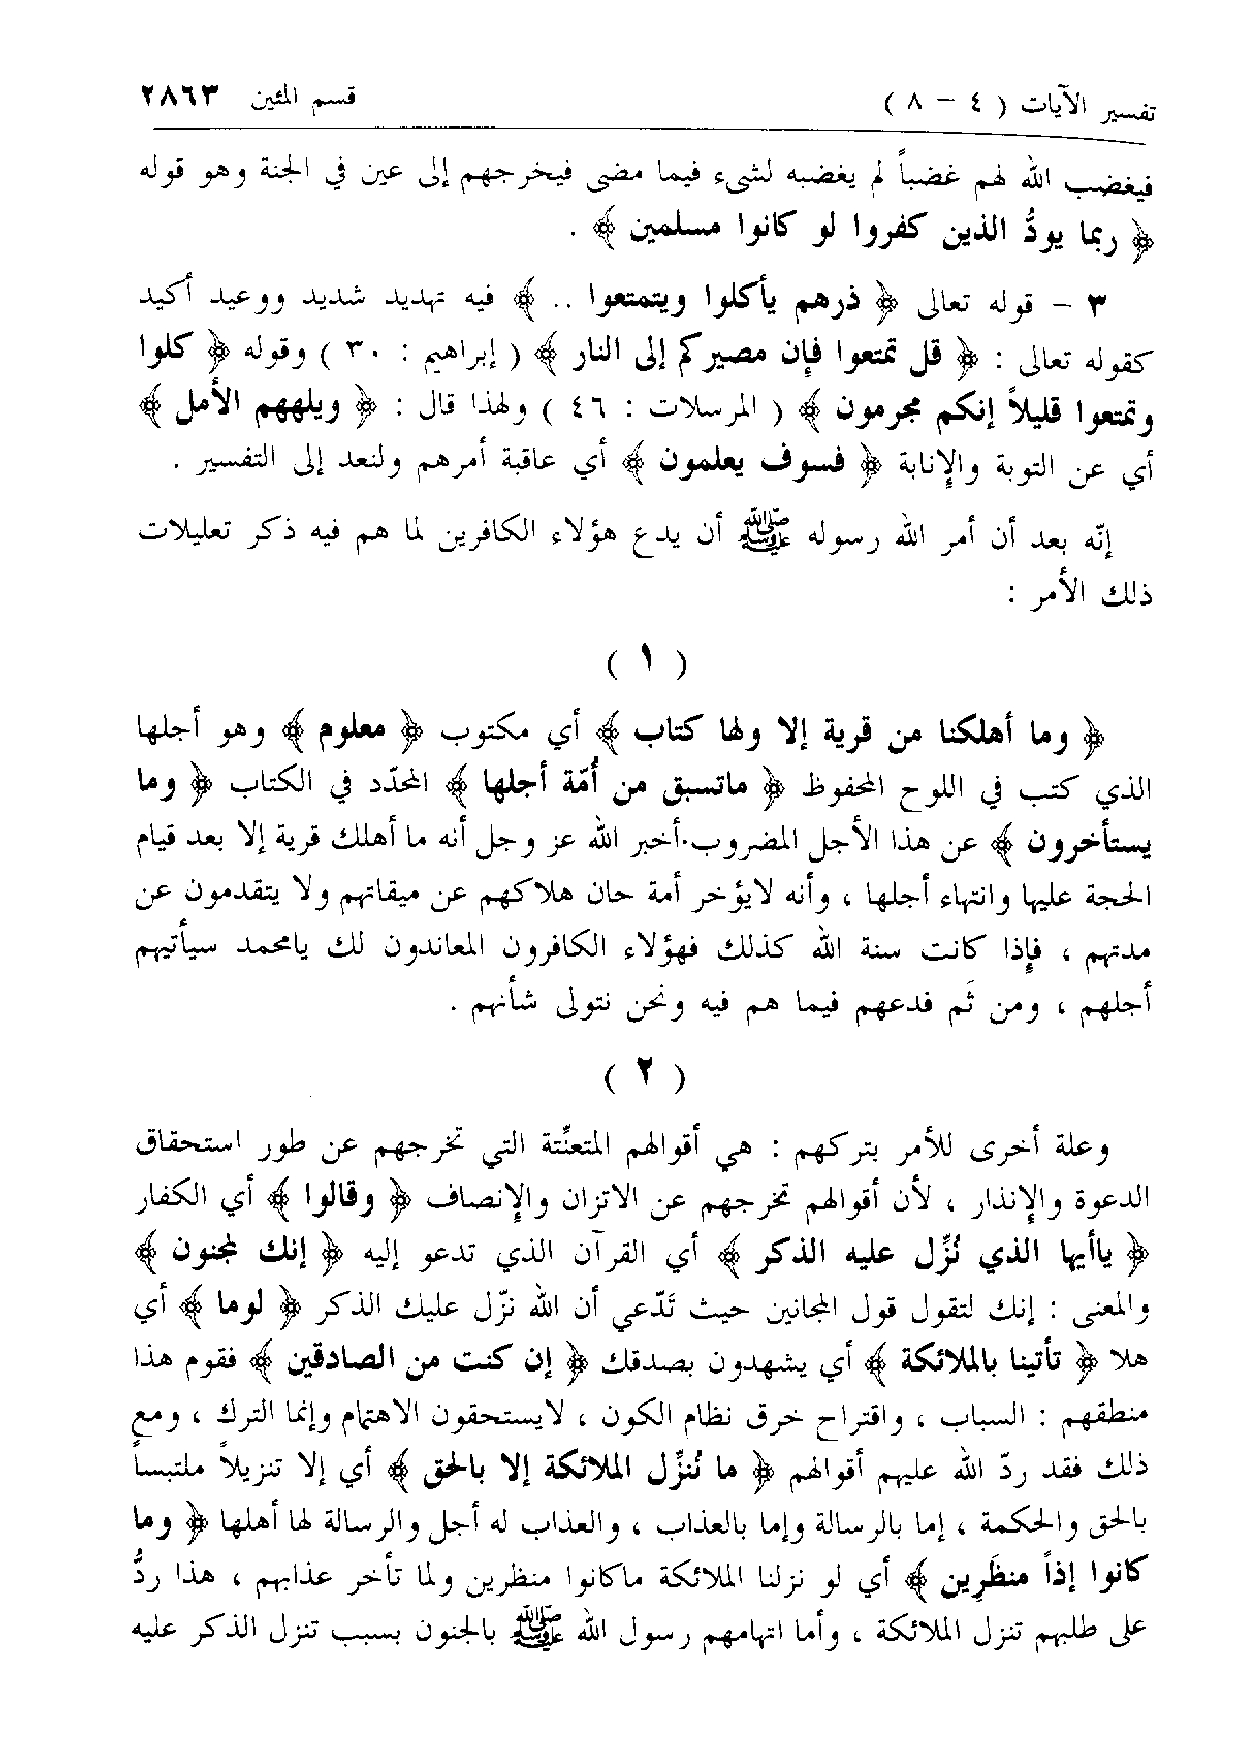 تفسير الآيات ( ٤ – ٨ ) قسم المئين ٢٨٦٣
فيغضب الله لهم غضباً لم يغضبه لشىء فيما مضى فيخرجهم إلى عين في الجنة وهو قوله
﴿ ربما يودُّ الذين كفروا لو كانوا مسلمين ﴾ .
٣ – قوله تعالى ﴿ ذرهم يأكلوا ويتمتعوا .. ﴾ فيه تهديد شديد ووعيد أكيد
كقوله تعالى : ﴿ قل تمتعوا فإن مصيركم إلى النار ﴾ ( إبراهيم : ٣٠ ) وقوله ﴿ كلوا
وتمتعوا قليلاً إنكم مجرمون ﴾ ( المرسلات : ٤٦ ) ولهذا قال : ﴿ ويلههم الأمل ﴾
أي عن التوبة والإنابة ﴿ فسوف يعلمون ﴾ أي عاقبة أمرهم ولنعد إلى التفسير .
إنّه بعد أن أمر الله رسوله ﷺ أن يدع هؤلاء الكافرين لما هم فيه ذكر تعليلات
ذلك الأمر :
( ١ )
﴿ وما أهلكنا من قرية إلا ولها كتاب ﴾ أي مكتوب ﴿ معلوم ﴾ وهو أجلها
الذي كتب في اللوح المحفوظ ﴿ ماتسبق من أُمّة أجلها ﴾ المحدّد في الكتاب ﴿ وما
يستأخرون ﴾ عن هذا الأجل المضروب.أخبر الله عز وجل أنه ما أهلك قرية إلا بعد قيام
الحجة عليها وانتهاء أجلها ، وأنه لايؤخر أمة حان هلاكهم عن ميقاتهم ولا يتقدمون عن
مدتهم ، فإذا كانت سنة الله كذلك فهؤلاء الكافرون المعاندون لك يامحمد سيأتيهم
أجلهم ، ومن ثَم فدعهم فيما هم فيه ونحن نتولى شأنهم .
( ٢ )
وعلة أخرى للأمر بتركهم : هي أقوالهم المتعنّتة التي تخرجهم عن طور استحقاق
الدعوة والإنذار ، لأن أقوالهم تخرجهم عن الاتزان والإنصاف ﴿ وقالوا ﴾ أي الكفار
﴿ ياأيها الذي نُزِّل عليه الذكر ﴾ أي القرآن الذي تدعو إليه ﴿ إنك لمجنون ﴾
والمعنى : إنك لتقول قول المجانين حيث تَدّعي أن الله نزّل عليك الذكر ﴿ لوما ﴾ أي
هلا ﴿ تأتينا بالملائكة ﴾ أي يشهدون بصدقك ﴿ إن كنت من الصادقين ﴾ فقوم هذا
منطقهم : السباب ، واقتراح خرق نظام الكون ، لايستحقون الاهتمام وإنما الترك ، ومع
ذلك فقد ردّ الله عليهم أقوالهم ﴿ ما نُنزِّل الملائكة إلا بالحق ﴾ أي إلا تنزيلاً ملتبساً
بالحق والحكمة ، إما بالرسالة وإما بالعذاب ، والعذاب له أجل والرسالة لها أهلها ﴿ وما
كانوا إذاً منظَرِين ﴾ أي لو نزلنا الملائكة ماكانوا منظرين ولما تأخر عذابهم ، هذا ردُّ
على طلبهم تنزل الملائكة ، وأما اتهامهم رسول الله ﷺ بالجنون بسبب تنزل الذكر عليه